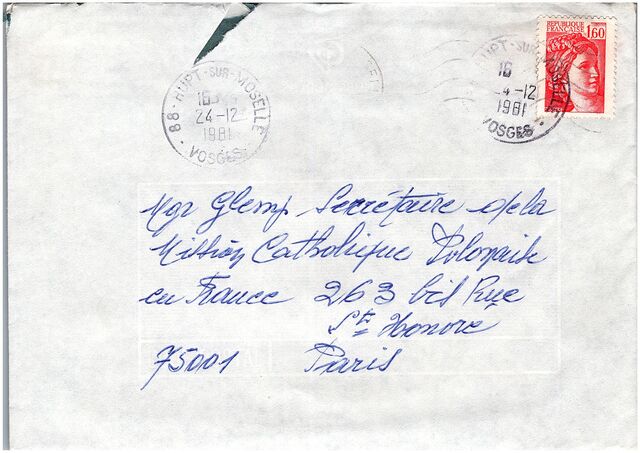 REPUBLIQUE
FRANÇAISE 1,60
88 - RUPT-SUR-MOSELLE
16
24-12
1981
VOSGES
RUPT-SUR-MOSELLE
16
24-12
1981
VOSGES
Mgr Glemp Secrétaire de la
Mission Catholique Polonaise
en France 263 bis Rue
St Honoré
75001 Paris